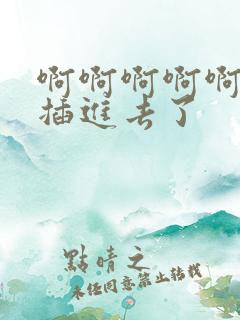 啊啊啊啊啊
插進去了
點晴之
未经同意禁止转载